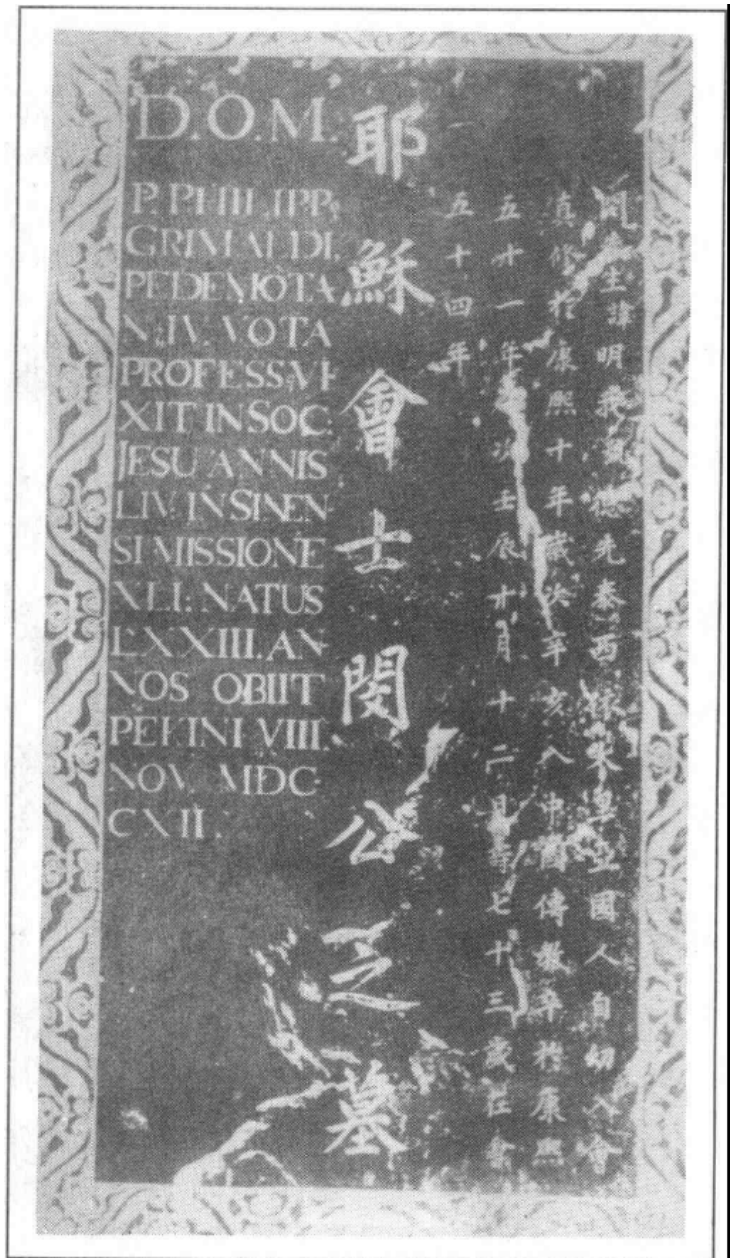 D.O.M.
P. PHILIPP.
GRIMALDI.
PEDEMOTA-
N. IV. VOTA
PROFESS. VI-
XIT IN SOC.
JESU ANNIS
LIV. IN SINEN-
SI MISSIONE
XLI: NATUS
LXXIII. AN-
NOS OBIIT
PEKINI VIII.
NOV. MDC-
CXII.
耶穌會士閔公之墓
閔先生諱明我號德先泰西亞國人自幼入會
真修於康熙十年歲次辛亥入中國傳教卒於康熙
五十一年歲次壬辰月十二日壽七十三歲在會
五十四年